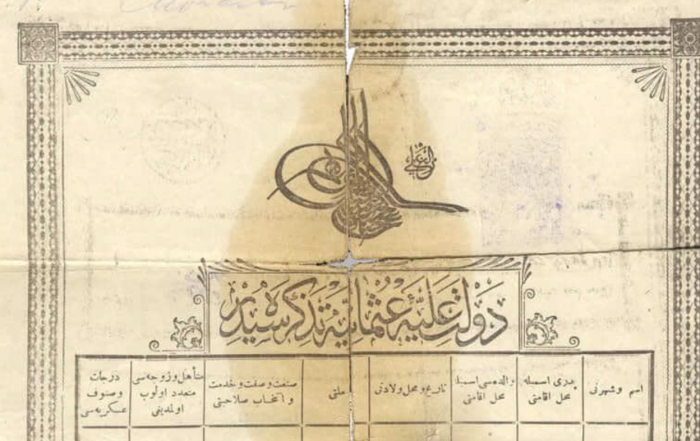 الغازی
دولت علیۀ عثمانیه تذکره سیدر
اسم وشهرتی
پدری اسمیله
محل اقامتی
والده سی اسمیله
محل اقامتی
تاریخ ومحل ولادتی
ملتی
صنعت وصفت وخدمت
و انتخاب صلاحیتی
متأهل وزوجه سی
متعدد اولوب
اولمدیغی
درجات
وصنوف
عسکریه سی